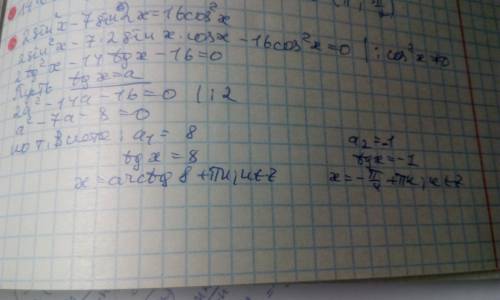 2sin²x - 7sin2x = 16cos²x
2sin²x - 7·2sinx·cosx - 16cos²x = 0 | : cos²x ≠ 0
2tg²x - 14tgx - 16 = 0
Пусть tgx = a
2a² - 14a - 16 = 0 | : 2
a² - 7a - 8 = 0
по т. Виета: a₁ = 8
a₂ = -1
tgx = 8
tgx = -1
x = arctg8 + πn, n∈z
x = -π/4 + πn, n∈z